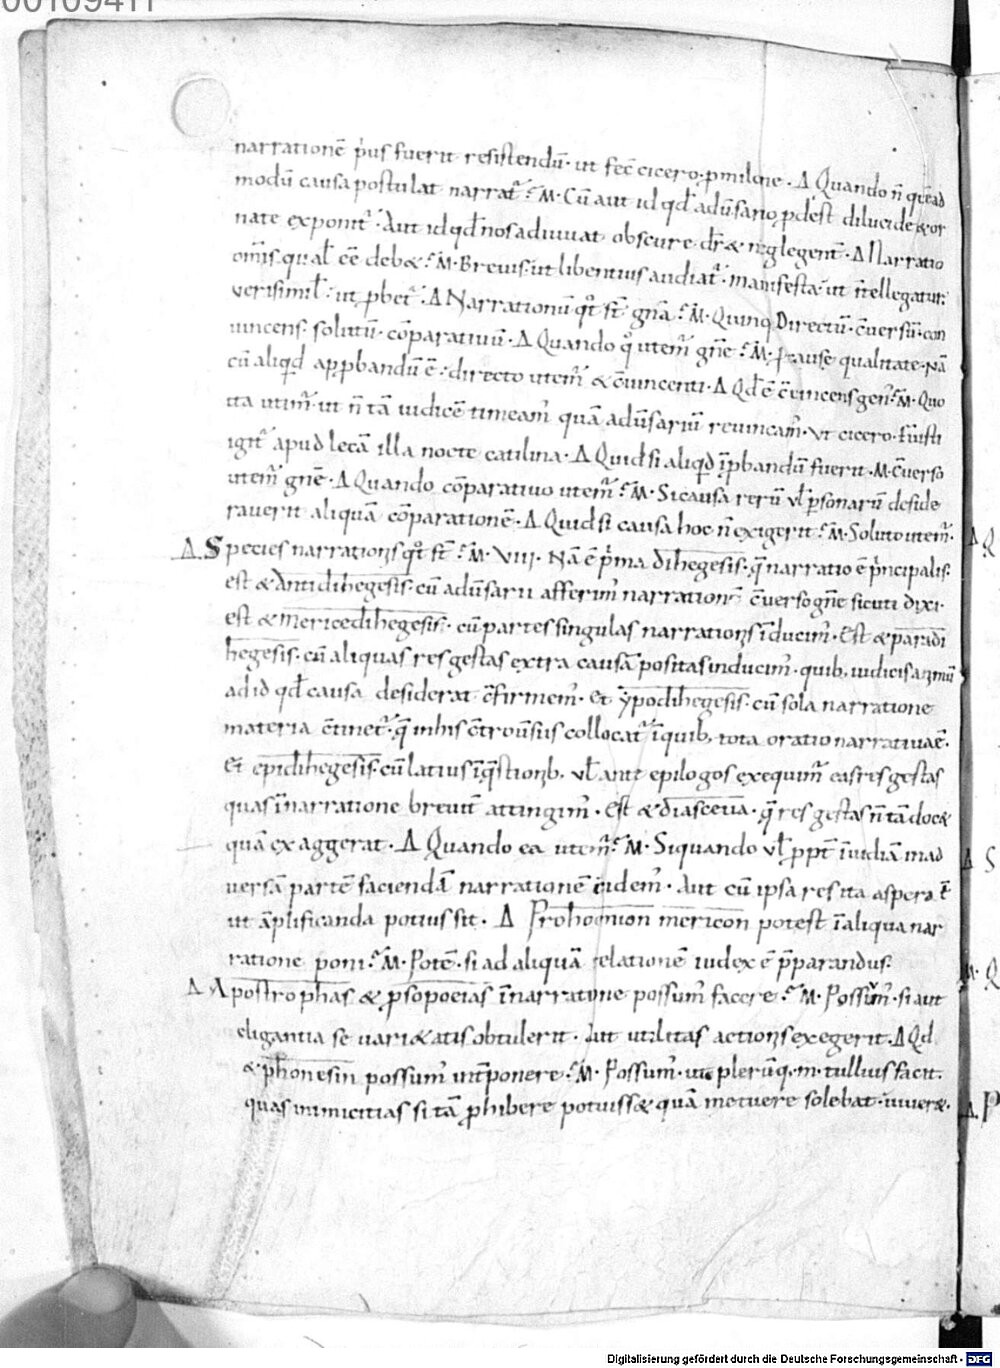 00109411
narrationē p̍us fuerit resistendū· ut fec̄ cicero· ꝓ milọe· Δ Quando n̄ quēad
modū causa postulat narrat᷑ ·M· Cū aut id qd̄ aduersario ꝓdest dilucide & or
nate exponit᷑· Aut id qd̄ nos adiuuat obscure dr̄ & neglegent̄· Δ Narratio
om̄is qual̄ ēē deb&· ·M· Breuis· ut libentius audiat᷑· manifesta· ut intellegatur·
verisimil̄· ut ꝓbet᷑· Δ Narrationū qt̄ st̄ gn̄a ·M· Quinq· Directū· c̄uersū· con
uincens· solutū· cōparatiuū· Δ Quando q̊ utem᷑ gn̄e ·M· P̱ causę qualitate· Nā
cū aliqd apꝓbandū ē· directo utem᷑ & c̄uincenti· Δ Qd̄ ē c̄uincens gen᷑ ·M· Quo
ita utim᷑· ut n̄ tā iudicē timeam᷑ quā aduersariū reuincam᷑· Ut cicero· Fuisti
igit᷑ apud lecā illa nocte catilina· Δ Quid si aliqd īꝓbandū fuerit· M· C̄uerso
utem᷑ gn̄e· Δ Quando cōparatiuo utem᷑ ·M· Si causa rerū ul̄ ꝑsonarū deside
rauerit aliquā cōparationē· Δ Quid si causa hoc n̄ exigerit ·M· Soluto utem᷑·
Δ Species narrationis qt̄ st̄ ·M· VIII· Nā ē p̍ma dihegesis· q̄ narratio ē p̍ncipalis·
est & antidihegesis· cū aduersarii afferim᷑ narrationē c̄uerso gn̄e sicuti dixi·
est & mericedihegesis· cū partes singulas narrationis īducim᷑· Est & paradi
hegesis· cū aliquas res gestas extra causā positas inducim᷑· quib; iudicis animū
ad id qd̄ causa desiderat c̄firmem᷑· Et ypodihegesis· cū sola narratione
materia c̄tinet᷑· q̄ in his c̄trouersiis collocat᷑ ī quib; tota oratio narratiua ē·
Et epidihegesis· cū latius ī q̄stionib; ul̄ ante epilogos exequim᷑ eas res gestas
quas ī narratione breuit̄ attingim᷑· Est & diasceua· q̄ res gestas n̄ tā doc&
quā exaggerat· Δ Quando ea utem᷑ ·M· Si quando ul̄ ꝓpt̄ īuidiā in ad
uersā partē faciendā narrationē eidem᷑· Aut cū ipsa res ita aspera ē
ut āplificanda potius sit· Δ Prohoemion mericon potest ī aliqua nar
ratione poni ·M· Potē· si ad aliquā relationē iudex ē p̄parandus·
Δ Apostrophas & ꝓsopoeias ī narratione possum᷑ facere ·M· Possum᷑· si aut
eligantia se uari&atis obtulerit· Aut utilitas actionis exegerit· Δ Qd
& phonesin possum᷑ int̄ponere ·M· Possum᷑· ut plerūq· m· tullius facit·
quas inimicitias si tā ꝓhibere potuiss& quā metuere solebat· uiuer&·
Digitalisierung gefördert durch die Deutsche Forschungsgemeinschaft - DFG